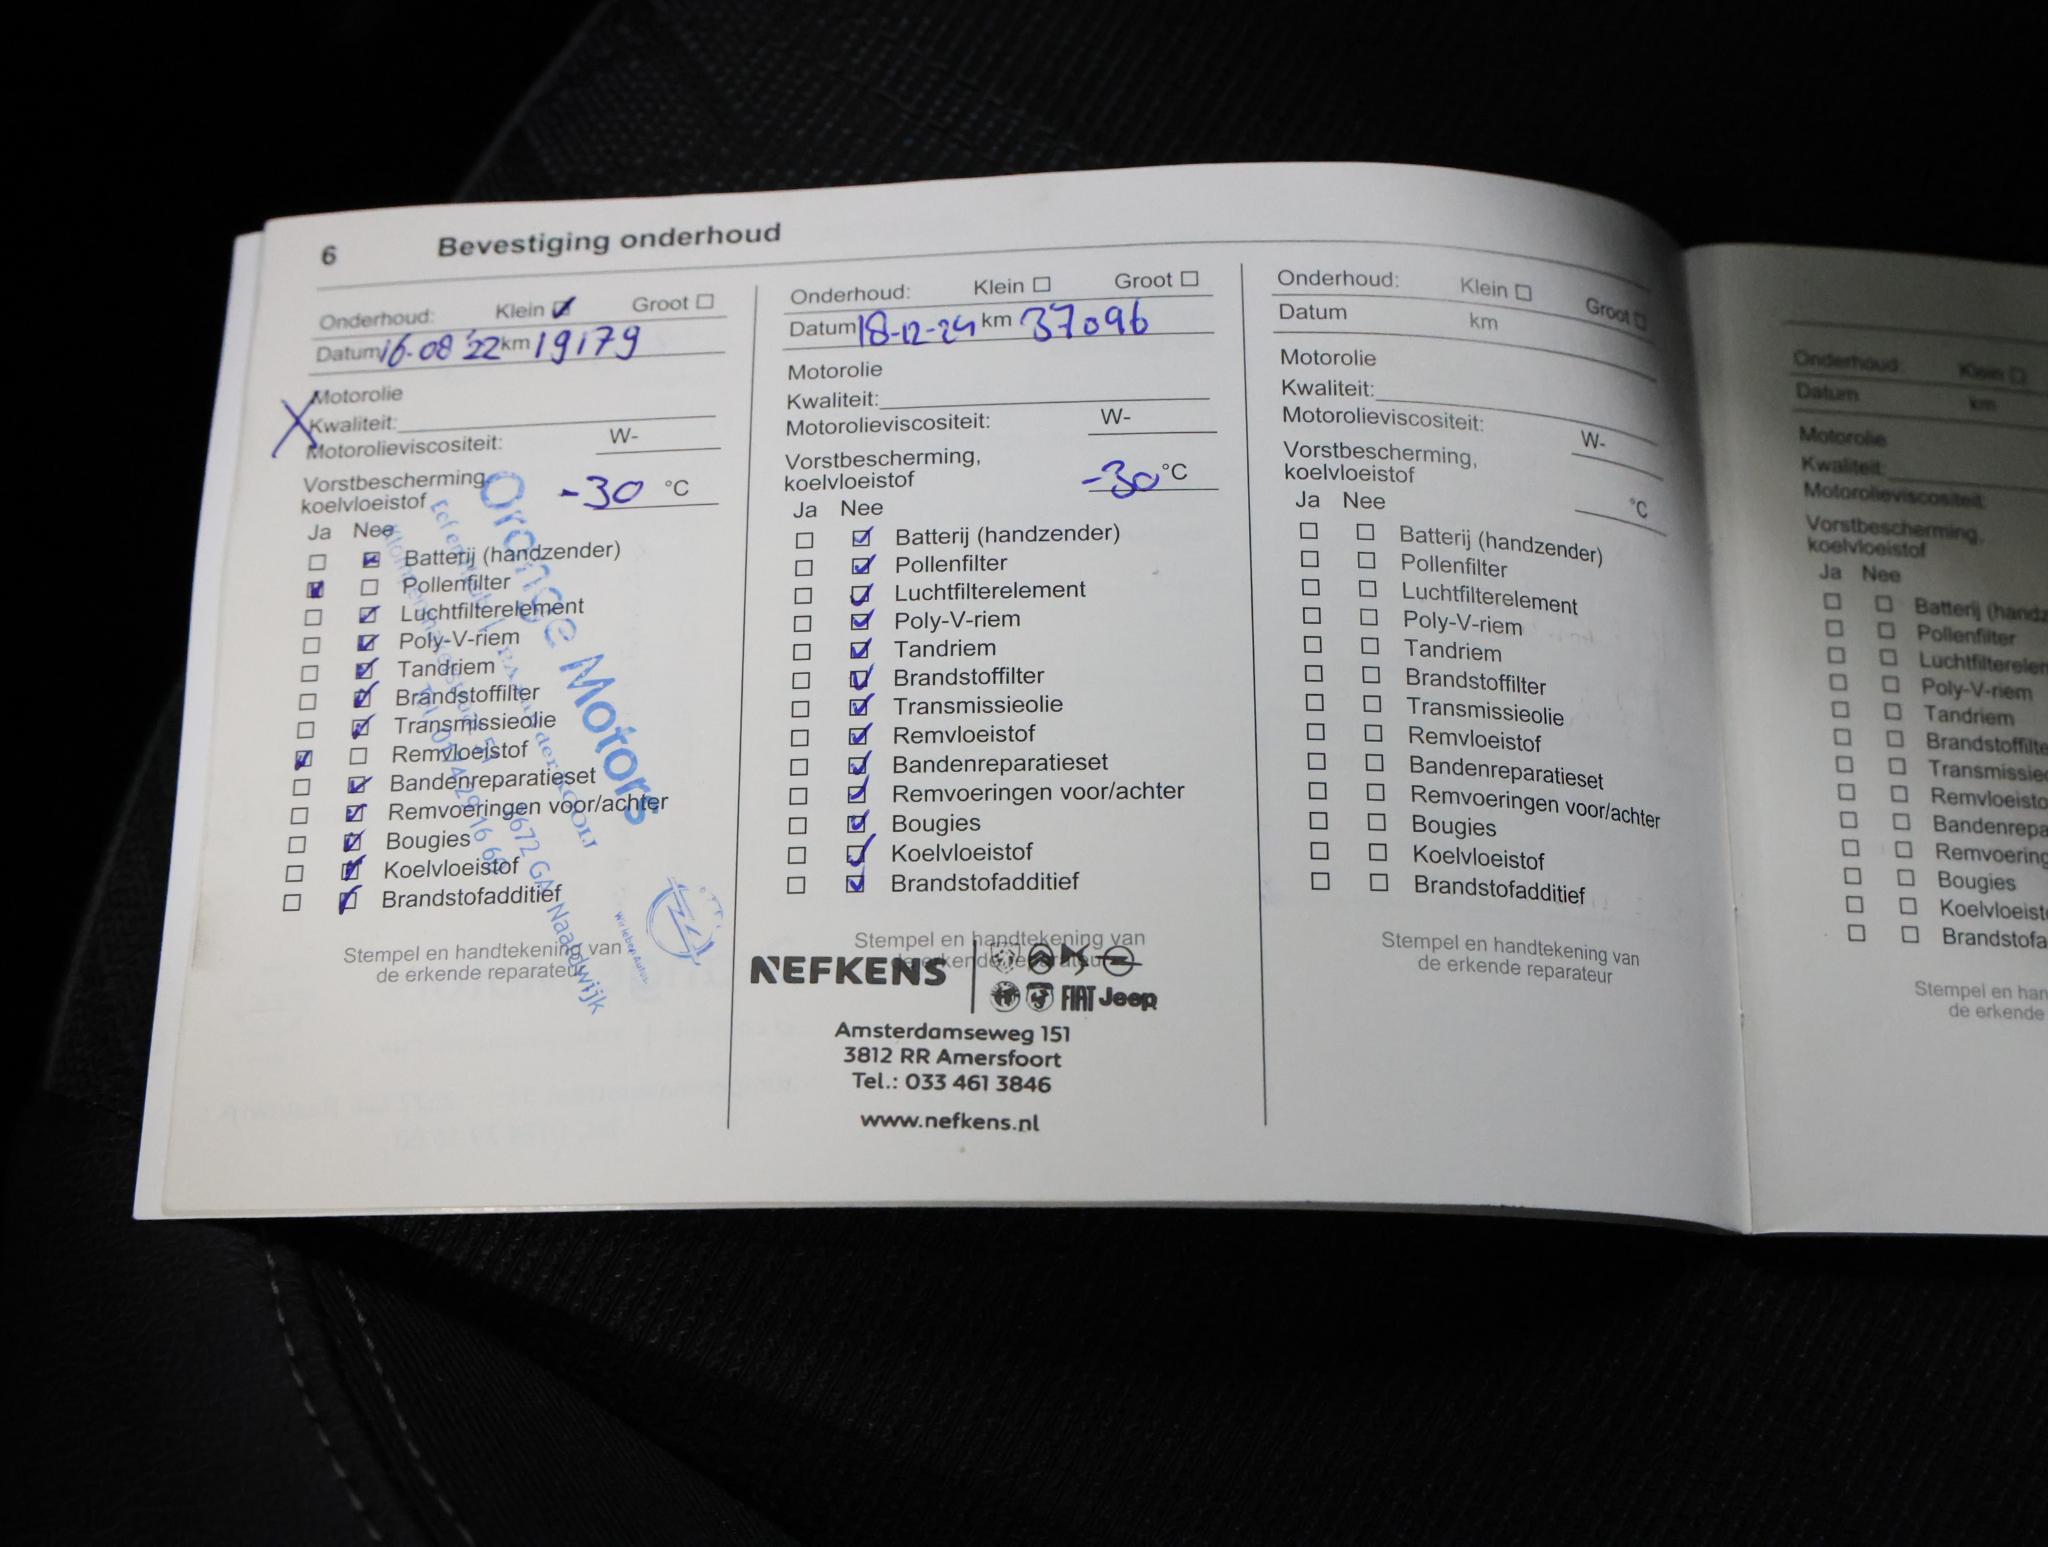 6 Bevestiging onderhoud
Onderhoud: Klein Groot
Datum 16-08'22 km 19179
Motorolie
Kwaliteit:
Motorolieviscositeit: W-
Vorstbescherming,
koelvloeistof -30 °C
Ja Nee
Batterij (handzender)
Pollenfilter
Luchtfilterelement
Poly-V-riem
Tandriem
Brandstoffilter
Transmissieolie
Remvloeistof
Bandenreparatieset
Remvoeringen voor/achter
Bougies
Koelvloeistof
Brandstofadditief
Stempel en handtekening van
de erkende reparateur
Orange Motors
2672 GA Naaldwijk
Wir leben Autos.
Onderhoud: Klein Groot
Datum 18-12-24 km 37096
Motorolie
Kwaliteit:
Motorolieviscositeit: W-
Vorstbescherming,
koelvloeistof -30 °C
Ja Nee
Batterij (handzender)
Pollenfilter
Luchtfilterelement
Poly-V-riem
Tandriem
Brandstoffilter
Transmissieolie
Remvloeistof
Bandenreparatieset
Remvoeringen voor/achter
Bougies
Koelvloeistof
Brandstofadditief
Stempel en handtekening van
de erkende reparateur
NEFKENS
FIAT Jeep
Amsterdamseweg 151
3812 RR Amersfoort
Tel.: 033 461 3846
www.nefkens.nl
Onderhoud: Klein Groot
Datum km
Motorolie
Kwaliteit:
Motorolieviscositeit: W-
Vorstbescherming,
koelvloeistof °C
Ja Nee
Batterij (handzender)
Pollenfilter
Luchtfilterelement
Poly-V-riem
Tandriem
Brandstoffilter
Transmissieolie
Remvloeistof
Bandenreparatieset
Remvoeringen voor/achter
Bougies
Koelvloeistof
Brandstofadditief
Stempel en handtekening van
de erkende reparateur
Onderhoud: Klein
Datum km
Motorolie
Kwaliteit:
Motorolieviscositeit:
Vorstbescherming,
koelvloeistof
Ja Nee
Batterij (handz
Pollenfilter
Luchtfilterelem
Poly-V-riem
Tandriem
Brandstoffilte
Transmissie
Remvloeisto
Bandenrepa
Remvoering
Bougies
Koelvloeist
Brandstofa
Stempel en han
de erkende